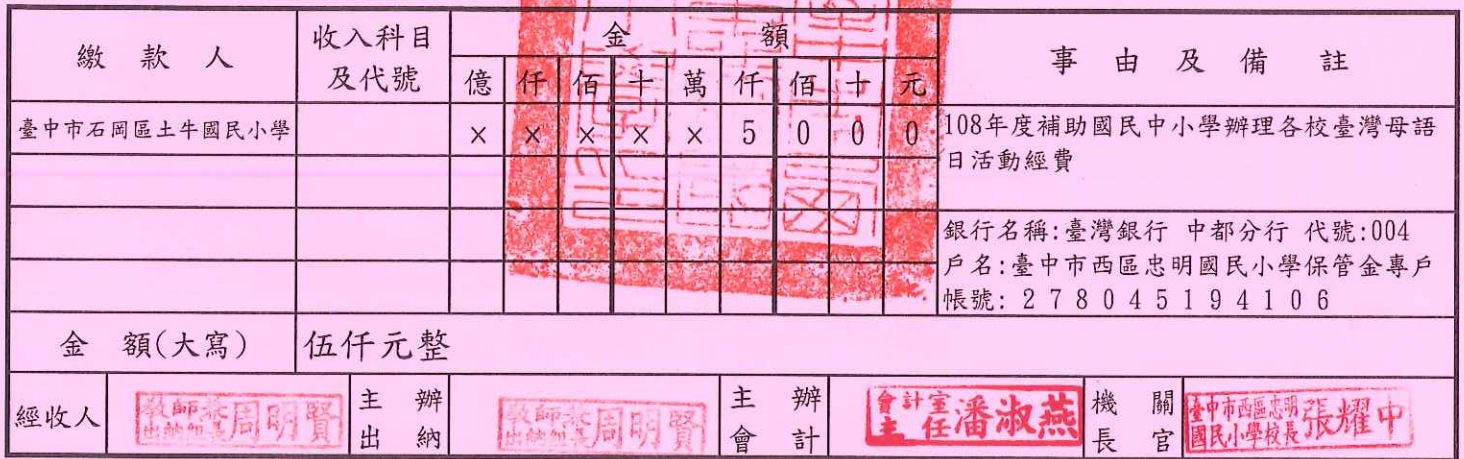 繳款人
收入科目
及代號
金額
億仟佰十萬仟佰十元
事由及備註
臺中市石岡區土牛國民小學
×××××5000
108年度補助國民中小學辦理各校臺灣母語
日活動經費
銀行名稱:臺灣銀行 中都分行 代號:004
戶名:臺中市西區忠明國民小學保管金專戶
帳號: 278045194106
金額(大寫)
伍仟元整
經收人
教師兼
出納組長
周明賢
主辦
出納
教師兼
出納組長
周明賢
主辦
會計
會計室
主任
潘淑燕
機關
長官
臺中市西區忠明
國民小學校長
張耀中